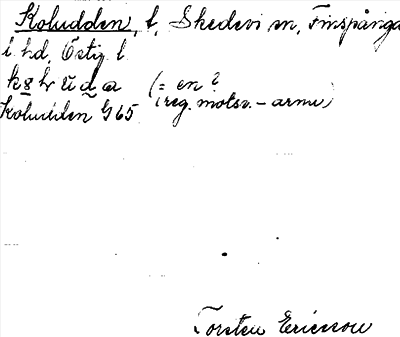 Koludden, t, Skedevi sn, Finspånga
l. hd, Östg. l.
(= en?
Koludden G 65 (reg. motsv. - arna)
Torsten Ericsson